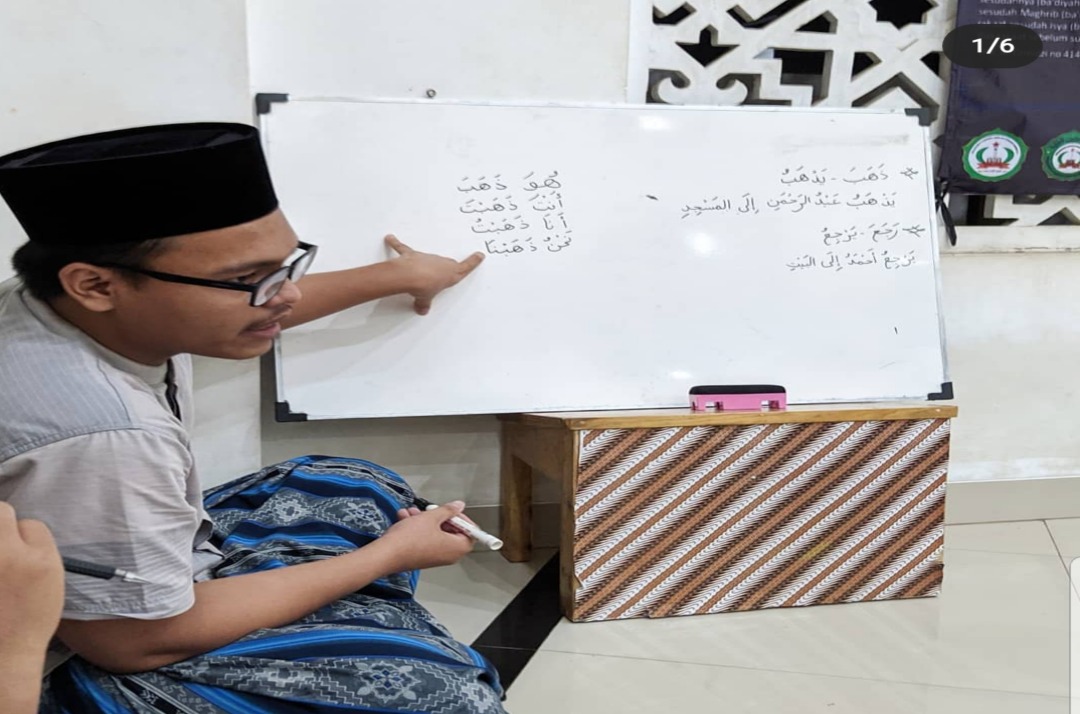 1/6
sesudah Maghrib (ba
sudah Isya (b
belum su
no 414
ذَهَبَ - يَذْهَبُ
يَذْهَبُ عَبْدُ الرَّحْمَنِ إِلَى المَسْجِدِ
رَجَعَ - يَرْجِعُ
يَرْجِعُ أَحْمَدُ إِلَى البَيْتِ
١
هُوَ ذَهَبَ
أَنْتَ ذَهَبْتَ
أَنَا ذَهَبْتُ
نَحْنُ ذَهَبْنَا